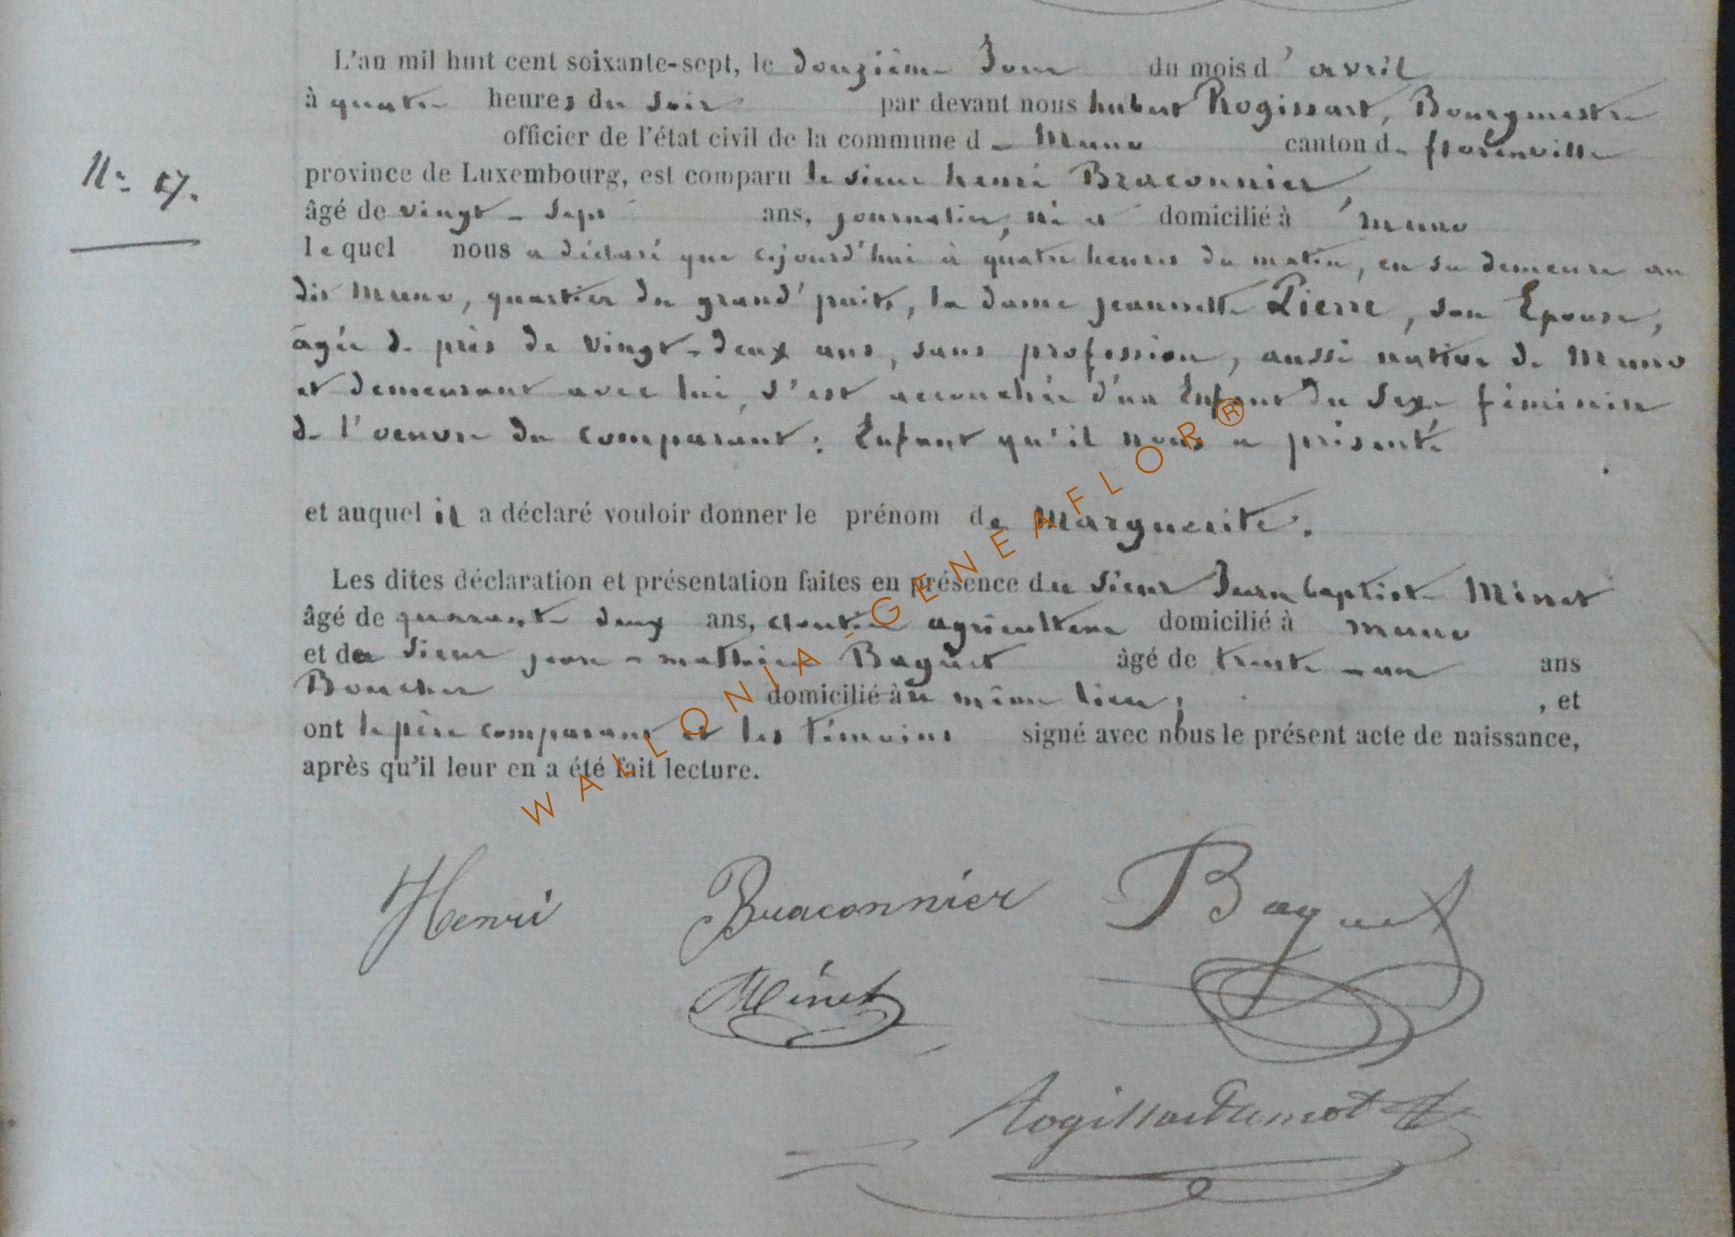 L'an mil huit cent soixante-sept, le douzième Jour du mois d'avril
à quatre heures du soir par devant nous hubert Rogissart, Bourgmestre
officier de l'état civil de la commune de Muno canton de florenville
N° 17.
province de Luxembourg, est comparu le sieur henri Braconnier
âgé de vingt-sept ans, journalier, né et domicilié à Muno
lequel nous a déclaré que cejourd'hui à quatre heures du matin, en sa demeure au
dit Muno, quartier du grand' puits, la dame jeannette Pierre, son Epouse,
âgée de près de vingt-deux ans, sans profession, aussi native de Muno
et demeurant avec lui, s'est accouchée d'un Enfant du Sexe féminin
de l'oeuvre du comparant; Enfant qu'il nous a présenté
et auquel il a déclaré vouloir donner le prénom de Marguerite.
Les dites déclaration et présentation faites en présence du sieur Jean baptiste Minet
âgé de quarante deux ans, cloutier agriculteur domicilié à muno
et du sieur jean-mathieu Baguet âgé de trente-un ans
Boucher domicilié au même lieu; , et
ont le père comparant et les témoins signé avec nous le présent acte de naissance,
après qu'il leur en a été fait lecture.
Henri Braconnier Baguet
Minet
WALLONIA-GENEAFLOR®